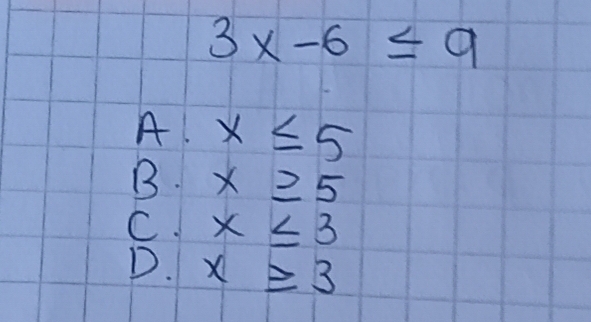 3x - 6 ≤ 9
A. x ≤ 5
B. x ≥ 5
C. x ≤ 3
D. x ≥ 3